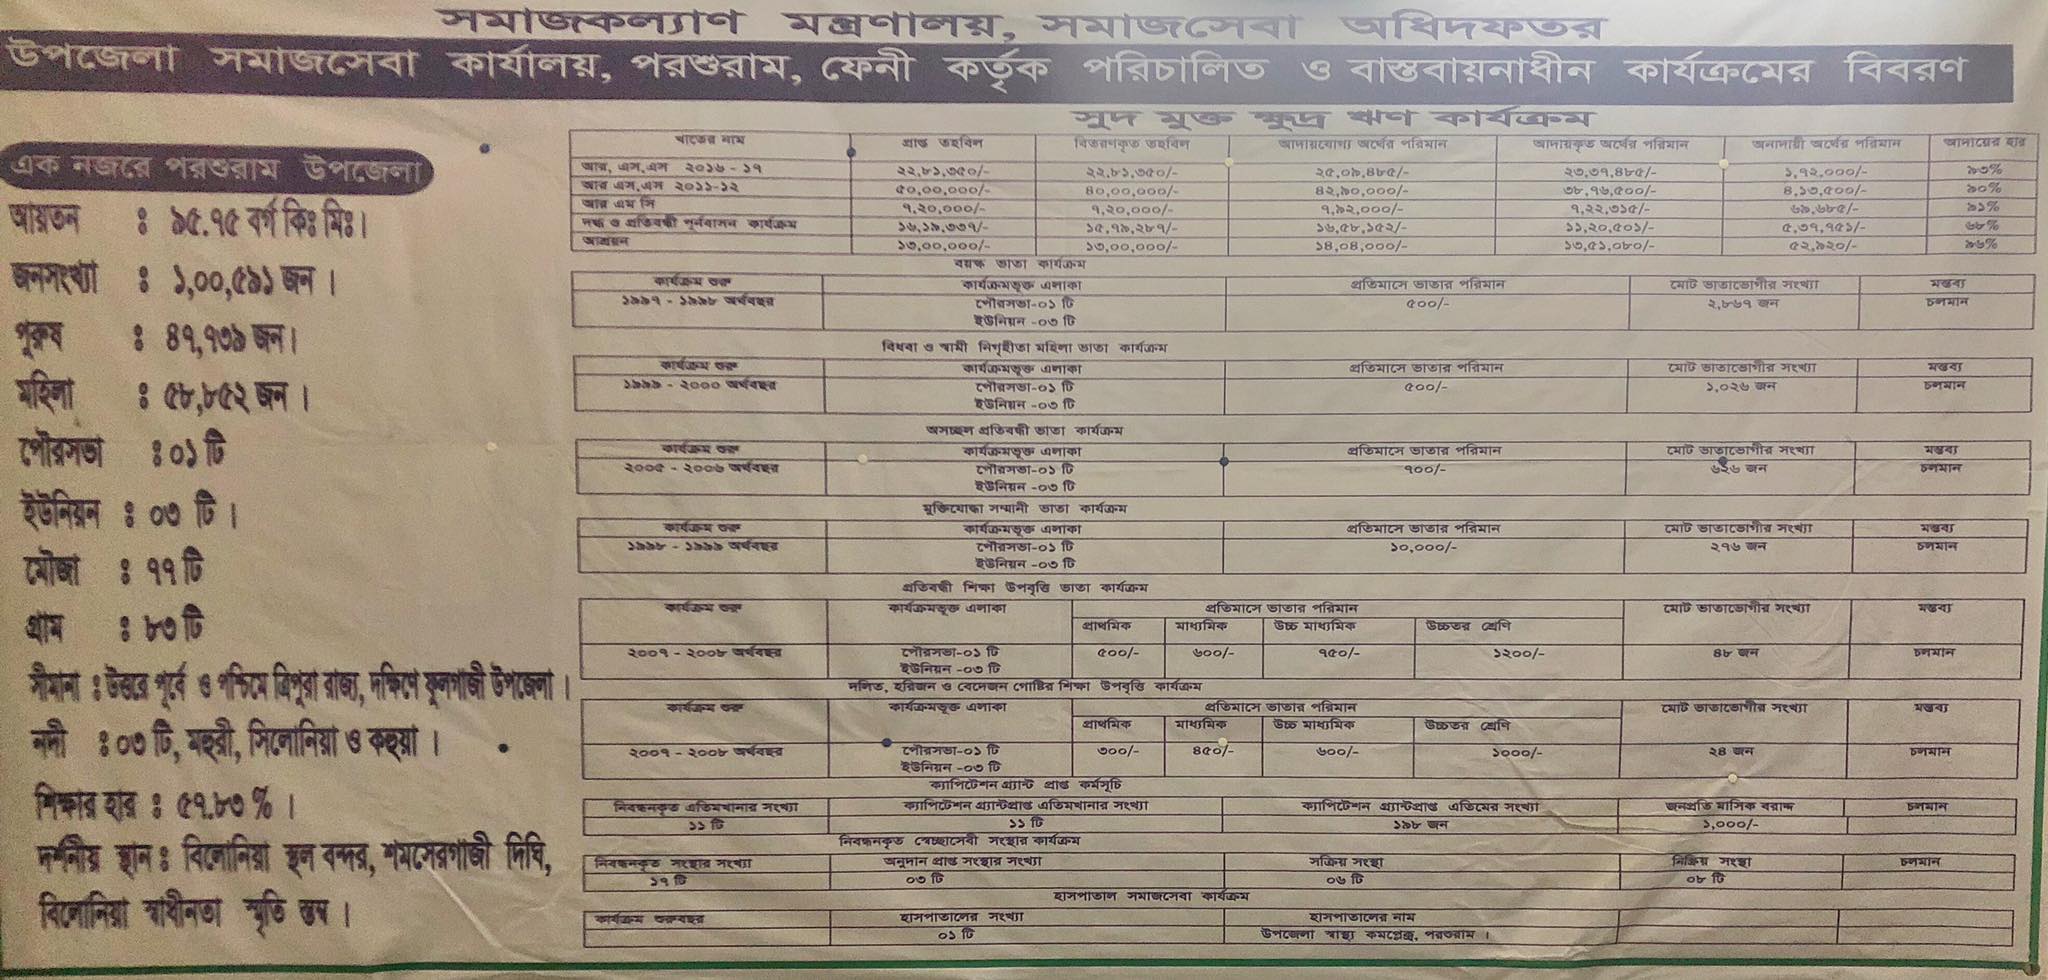 সমাজকল্যাণ মন্ত্রণালয়, সমাজসেবা অধিদফতর
উপজেলা সমাজসেবা কার্যালয়, পরশুরাম, ফেনী কর্তৃক পরিচালিত ও বাস্তবায়নাধীন কার্যক্রমের বিবরণ
এক নজরে পরশুরাম উপজেলা
আয়তন : ৯৫.৭৫ বর্গ কিঃ মিঃ।
জনসংখ্যা : ১,০০,৫৯১ জন ।
পুরুষ : ৪৭,৭৩৯ জন।
মহিলা : ৫৮,৮৫২ জন ।
পৌরসভা : ০১ টি
ইউনিয়ন : ০৩ টি ।
মৌজা : ৭৭ টি
গ্রাম : ৮৩ টি
সীমানা : উত্তরে পূর্বে ও পশ্চিমে ত্রিপুরা রাজ্য, দক্ষিণে ফুলগাজী উপজেলা ।
নদী : ০৩ টি, মহুরী, সিলোনিয়া ও কহুয়া ।
শিক্ষার হার : ৫৭.৮৩ % ।
দর্শনীয় স্থান : বিলোনিয়া স্থল বন্দর, শমসেরগাজী দিঘি,
বিলোনিয়া স্বাধীনতা স্মৃতি স্তম্ভ ।
সুদ মুক্ত ক্ষুদ্র ঋণ কার্যক্রম
খাতের নাম প্রাপ্ত তহবিল বিতরণকৃত তহবিল আদায়যোগ্য অর্থের পরিমান আদায়কৃত অর্থের পরিমান অনাদায়ী অর্থের পরিমান আদায়ের হার
আর, এস,এস ২০১৬ - ১৭ ২২,৮১,৩৫০/- ২২,৮১,৩৫০/- ২৫,০৯,৪৮৫/- ২৩,৩৭,৪৮৫/- ১,৭২,০০০/- ৯৩%
আর এস,এস ২০১১-১২ ৫০,০০,০০০/- ৪০,০০,০০০/- ৪২,৯০,০০০/- ৩৮,৭৬,৫০০/- ৪,১৩,৫০০/- ৯০%
আর এম সি ৭,২০,০০০/- ৭,২০,০০০/- ৭,৯২,০০০/- ৭,২২,৩১৫/- ৬৯,৬৮৫/- ৯১%
দগ্ধ ও প্রতিবন্ধী পূর্নবাসন কার্যক্রম ১৬,১৯,৩৩৭/- ১৫,৭৯,২৮৭/- ১৬,৫৮,১৫২/- ১১,২০,৫০১/- ৫,৩৭,৭৫১/- ৬৮%
আশ্রয়ন ১৩,০০,০০০/- ১৩,০০,০০০/- ১৪,০৪,০০০/- ১৩,৫১,০৮০/- ৫২,৯২০/- ৯৬%
বয়স্ক ভাতা কার্যক্রম
কার্যক্রম শুরু কার্যক্রমভূক্ত এলাকা প্রতিমাসে ভাতার পরিমান মোট ভাতাভোগীর সংখ্যা মন্তব্য
১৯৯৭ - ১৯৯৮ অর্থবছর পৌরসভা-০১ টি ৫০০/- ২,৮৬৭ জন চলমান
ইউনিয়ন -০৩ টি
বিধবা ও স্বামী নিগৃহীতা মহিলা ভাতা কার্যক্রম
কার্যক্রম শুরু কার্যক্রমভূক্ত এলাকা প্রতিমাসে ভাতার পরিমান মোট ভাতাভোগীর সংখ্যা মন্তব্য
১৯৯৯ - ২০০০ অর্থবছর পৌরসভা-০১ টি ৫০০/- ১,০২৬ জন চলমান
ইউনিয়ন -০৩ টি
অসচ্ছল প্রতিবন্ধী ভাতা কার্যক্রম
কার্যক্রম শুরু কার্যক্রমভূক্ত এলাকা প্রতিমাসে ভাতার পরিমান মোট ভাতাভোগীর সংখ্যা মন্তব্য
২০০৫ - ২০০৬ অর্থবছর পৌরসভা-০১ টি ৭০০/- ৬২৬ জন চলমান
ইউনিয়ন -০৩ টি
মুক্তিযোদ্ধা সম্মানী ভাতা কার্যক্রম
কার্যক্রম শুরু কার্যক্রমভূক্ত এলাকা প্রতিমাসে ভাতার পরিমান মোট ভাতাভোগীর সংখ্যা মন্তব্য
১৯৯৮ - ১৯৯৯ অর্থবছর পৌরসভা-০১ টি ১০,০০০/- ২৭৬ জন চলমান
ইউনিয়ন -০৩ টি
প্রতিবন্ধী শিক্ষা উপবৃত্তি ভাতা কার্যক্রম
কার্যক্রম শুরু কার্যক্রমভূক্ত এলাকা প্রতিমাসে ভাতার পরিমান মোট ভাতাভোগীর সংখ্যা মন্তব্য
প্রাথমিক মাধ্যমিক উচ্চ মাধ্যমিক উচ্চতর শ্রেণি
২০০৭ - ২০০৮ অর্থবছর পৌরসভা-০১ টি ৫০০/- ৬০০/- ৭৫০/- ১২০০/- ৪৮ জন চলমান
ইউনিয়ন -০৩ টি
দলিত, হরিজন ও বেদেজন গোষ্টির শিক্ষা উপবৃত্তি কার্যক্রম
কার্যক্রম শুরু কার্যক্রমভূক্ত এলাকা প্রতিমাসে ভাতার পরিমান মোট ভাতাভোগীর সংখ্যা মন্তব্য
প্রাথমিক মাধ্যমিক উচ্চ মাধ্যমিক উচ্চতর শ্রেণি
২০০৭ - ২০০৮ অর্থবছর পৌরসভা-০১ টি ৩০০/- ৪৫০/- ৬০০/- ১০০০/- ২৪ জন চলমান
ইউনিয়ন -০৩ টি
ক্যাপিটেশন গ্র্যান্ট প্রাপ্ত কর্মসূচি
নিবন্ধনকৃত এতিমখানার সংখ্যা ক্যাপিটেশন গ্র্যান্টপ্রাপ্ত এতিমখানার সংখ্যা ক্যাপিটেশন গ্র্যান্টপ্রাপ্ত এতিমের সংখ্যা জনপ্রতি মাসিক বরাদ্দ চলমান
১১ টি ১১ টি ১৯৮ জন ১,০০০/-
নিবন্ধনকৃত স্বেচ্ছাসেবী সংস্থার কার্যক্রম
নিবন্ধনকৃত সংস্থার সংখ্যা অনুদান প্রাপ্ত সংস্থার সংখ্যা সক্রিয় সংস্থা নিষ্ক্রিয় সংস্থা চলমান
১৭ টি ০৩ টি ০৬ টি ০৮ টি
হাসপাতাল সমাজসেবা কার্যক্রম
কার্যক্রম শুরুবছর হাসপাতালের সংখ্যা হাসপাতালের নাম
০১ টি উপজেলা স্বাস্থ্য কমপ্লেক্স, পরশুরাম ।